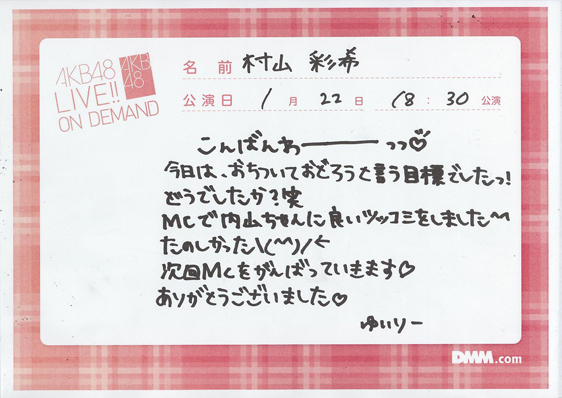 AKB48
LIVE!!
ON DEMAND
AKB
48
名前 村山 彩希
公演日 1月22日 18:30公演
こんばんわーーーっっ♡
今日は、おちついておどろうと言う目標でしたっ!
どうでしたか?笑
MCで内山ちゃんに良いツッコミをしました^^
たのしかった\(^^)/←
次回MCをがんばっていきます♡
ありがとうございました♡
ゆいりー
DMM.com